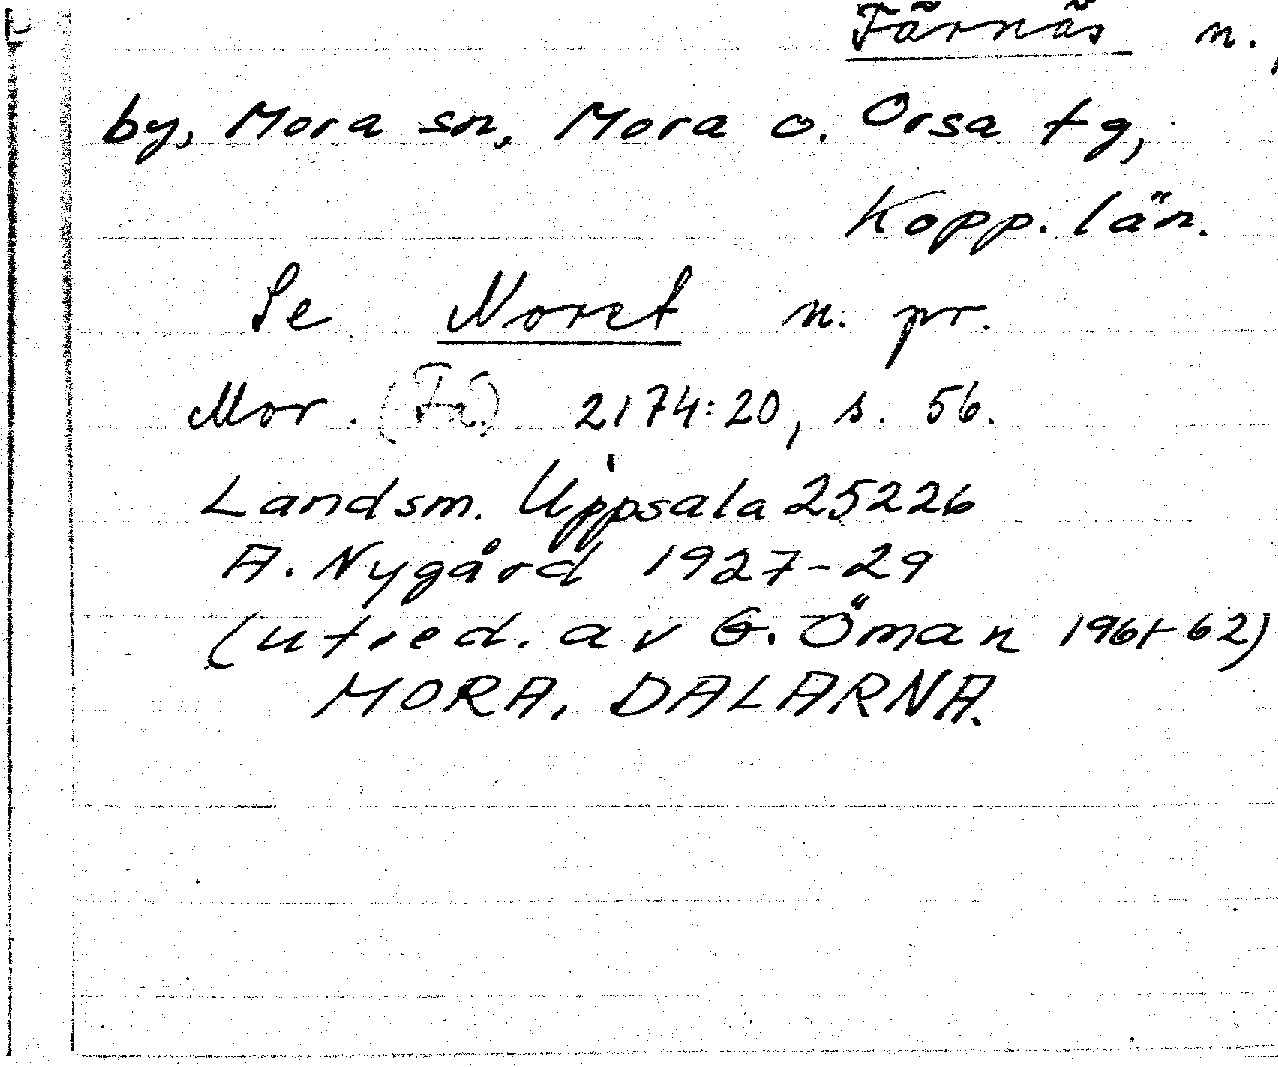 Färnäs n.,
by, Mora sn, Mora o. Orsa tg,
Kopp. län.
Se Noret n. pr.
Mor. (Fä) 2174:20, s. 56.
Landsm. Uppsala 25226
A. Nygård 1927-29
(utred. av G. Öman 1961-62)
MORA. DALARNA.